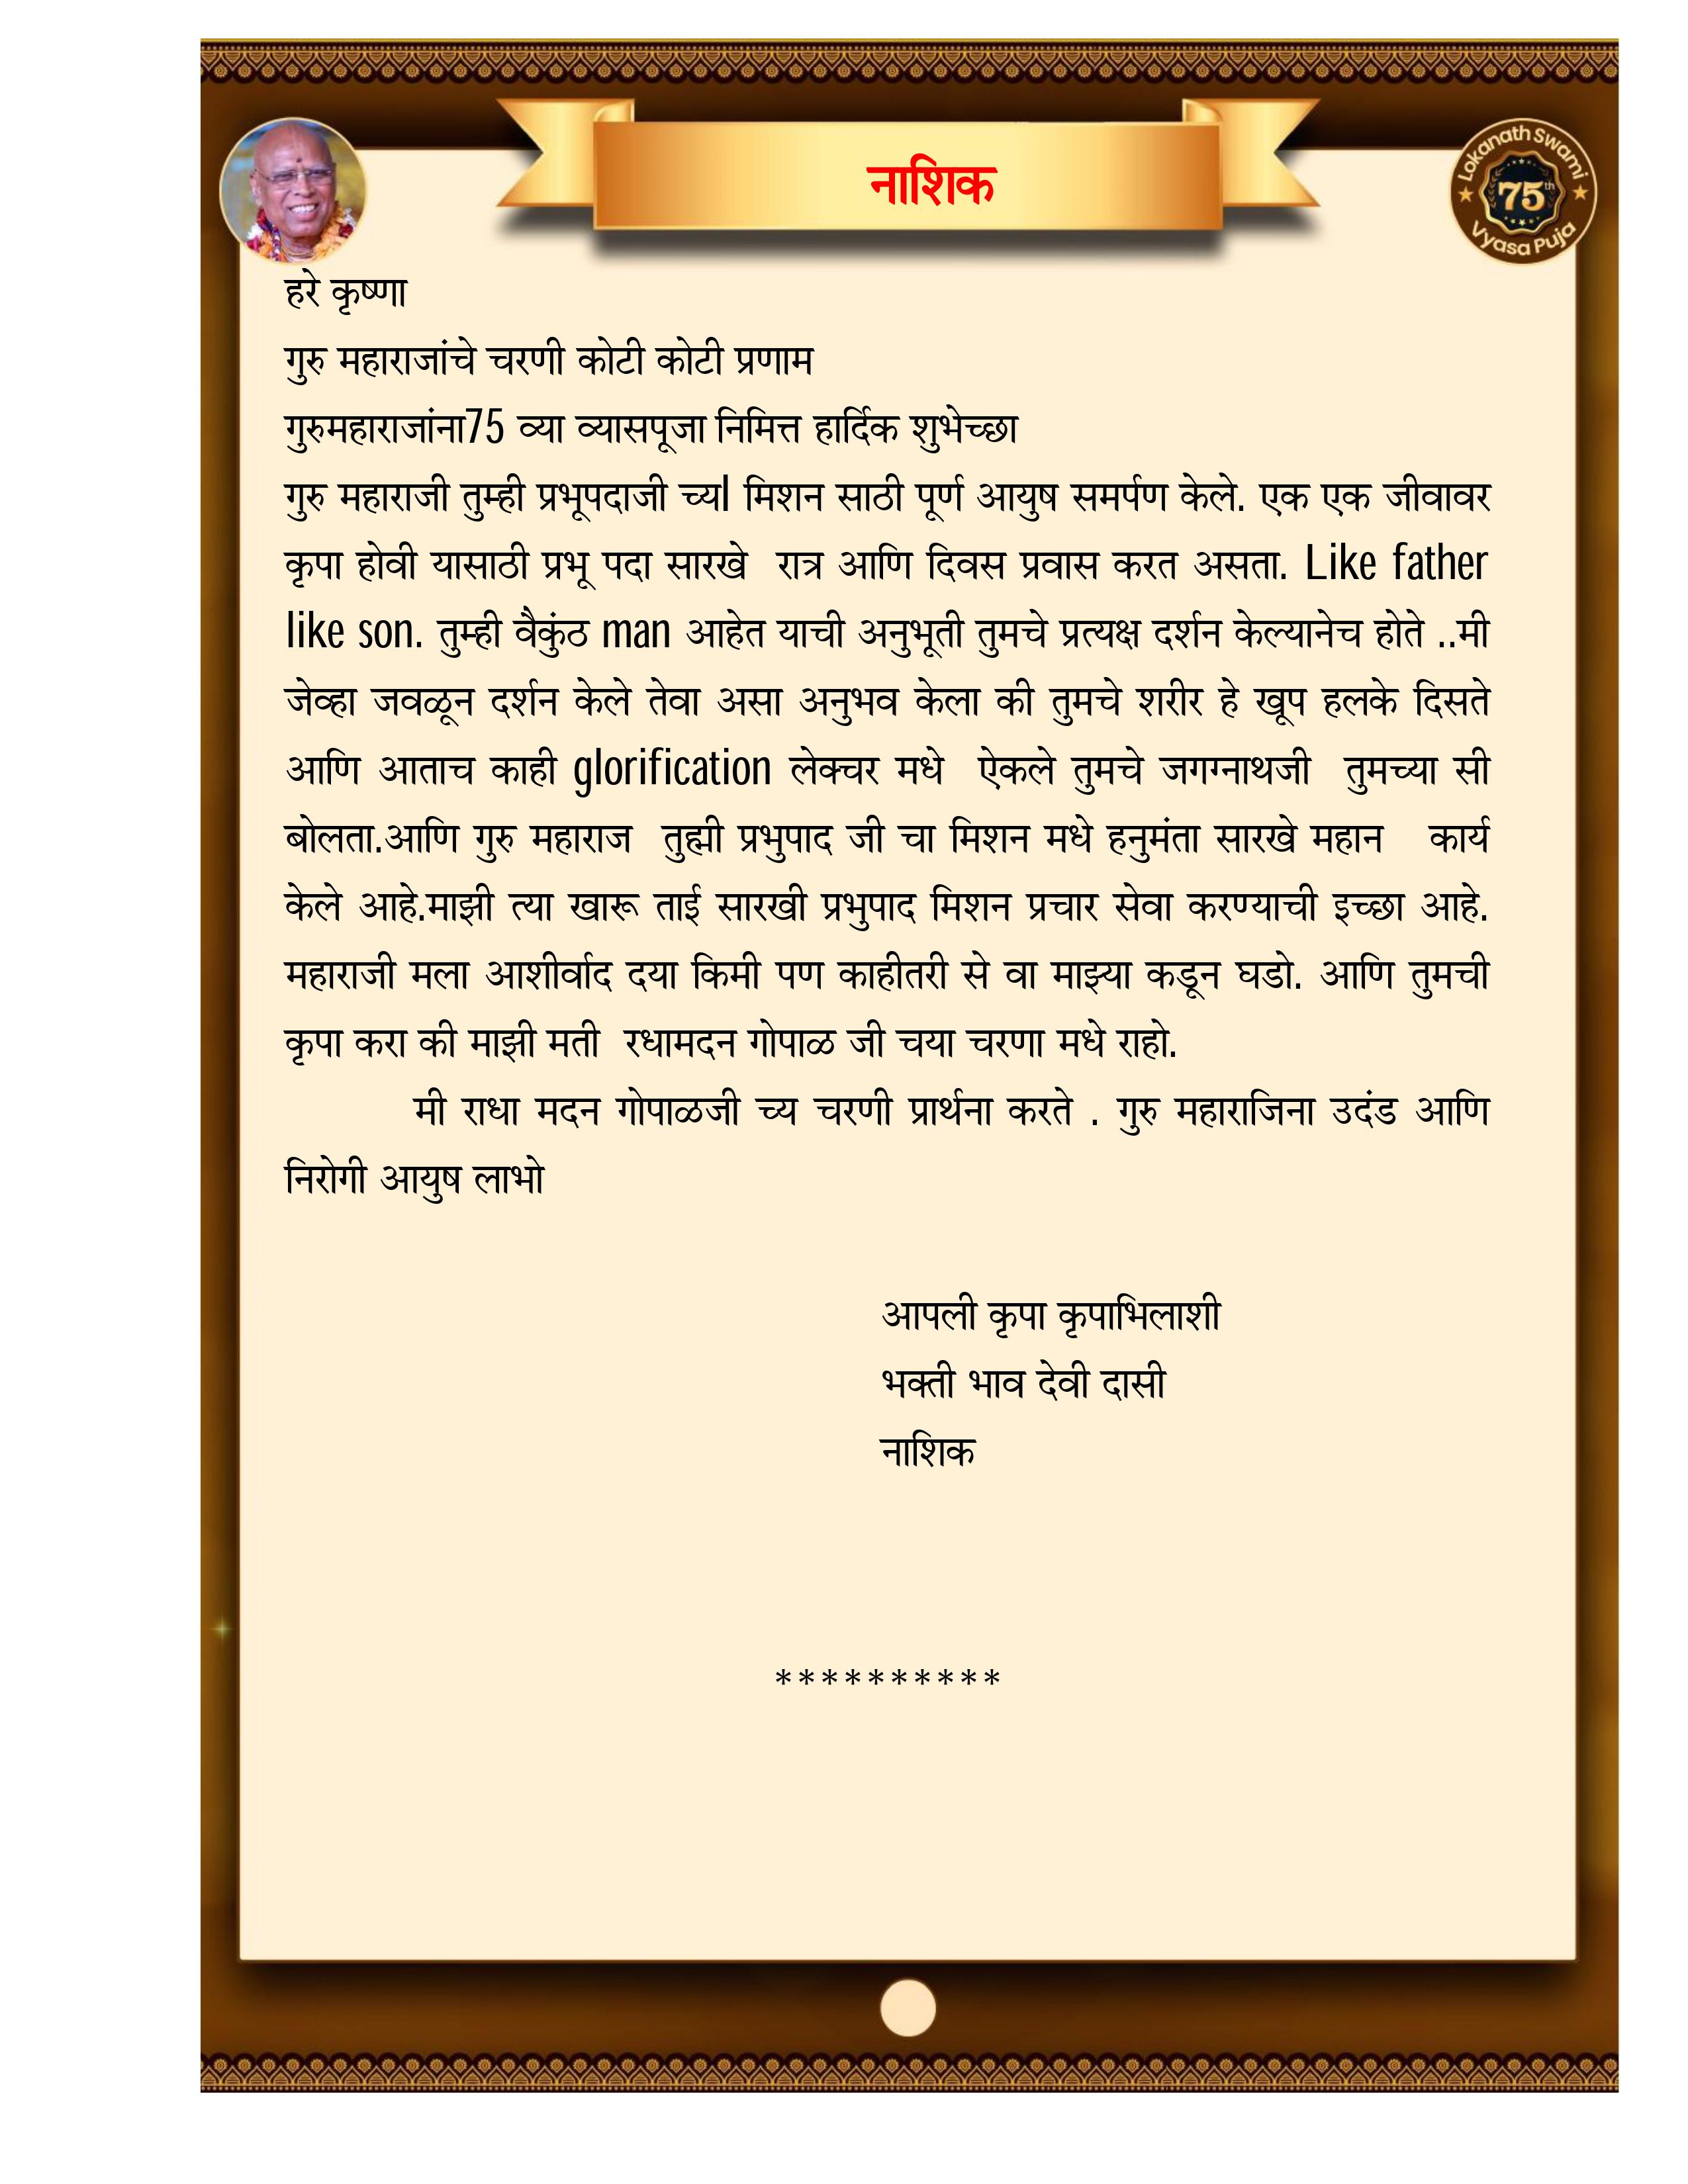 नाशिक
Lokanath Swami
75th
Vyasa Puja
हरे कृष्णा
गुरु महाराजांचे चरणी कोटी कोटी प्रणाम
गुरुमहाराजांना75 व्या व्यासपूजा निमित्त हार्दिक शुभेच्छा
गुरु महाराजी तुम्ही प्रभूपदाजी च्यl मिशन साठी पूर्ण आयुष समर्पण केले. एक एक जीवावर
कृपा होवी यासाठी प्रभू पदा सारखे रात्र आणि दिवस प्रवास करत असता. Like father
like son. तुम्ही वैकुंठ man आहेत याची अनुभूती तुमचे प्रत्यक्ष दर्शन केल्यानेच होते ..मी
जेव्हा जवळून दर्शन केले तेवा असा अनुभव केला की तुमचे शरीर हे खूप हलके दिसते
आणि आताच काही glorification लेक्चर मधे ऐकले तुमचे जगग्नाथजी तुमच्या सी
बोलता.आणि गुरु महाराज तुह्मी प्रभुपाद जी चा मिशन मधे हनुमंता सारखे महान कार्य
केले आहे.माझी त्या खारू ताई सारखी प्रभुपाद मिशन प्रचार सेवा करण्याची इच्छा आहे.
महाराजी मला आशीर्वाद दया किमी पण काहीतरी से वा माझ्या कडून घडो. आणि तुमची
कृपा करा की माझी मती रधामदन गोपाळ जी चया चरणा मधे राहो.
मी राधा मदन गोपाळजी च्य चरणी प्रार्थना करते . गुरु महाराजिना उदंड आणि
निरोगी आयुष लाभो
आपली कृपा कृपाभिलाशी
भक्ती भाव देवी दासी
नाशिक
**********